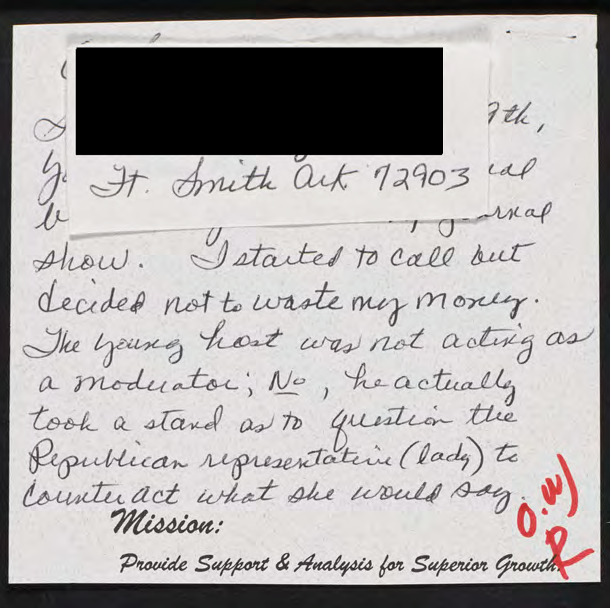 9th,
Ft. Smith Ark 72903
show. I started to call but
decided not to waste my money.
The young host was not acting as
a moderator; No, he actually
took a stand as to question the
Republican representative (lady) to
counteract what she would say.
Mission:
Provide Support & Analysis for Superior Growth.
R